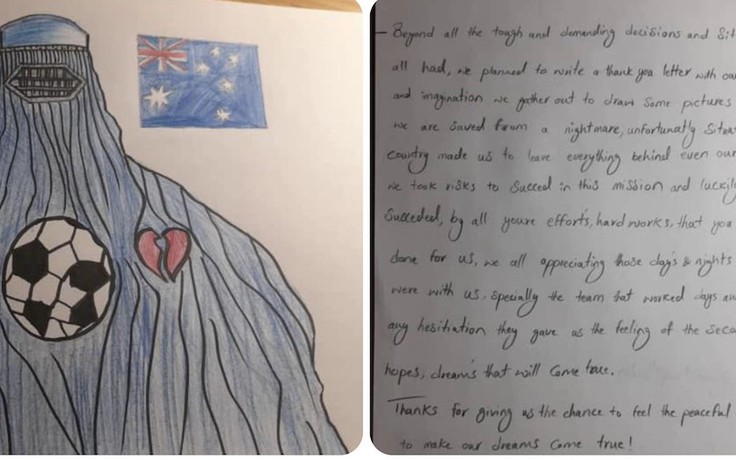 - Beyond all the tough and demanding decisions and
all had, we planned to write a thank you letter with
and imagination we gather out to draw some pictures
we are saved from a nightmare, unfortunatly
Country made us to leave everything behind even our
we took risks to succed in this mission and
Succeded, by all youre efforts, hard works, that you
done for us, we all appreciating those day's & nights
were with us, specially the team that worked days
any hesitiation they gave us the feeling of the
hopes, dreams that will come true.
Thanks for giving us the chance to feel the peaceful
to make our dreams come true!